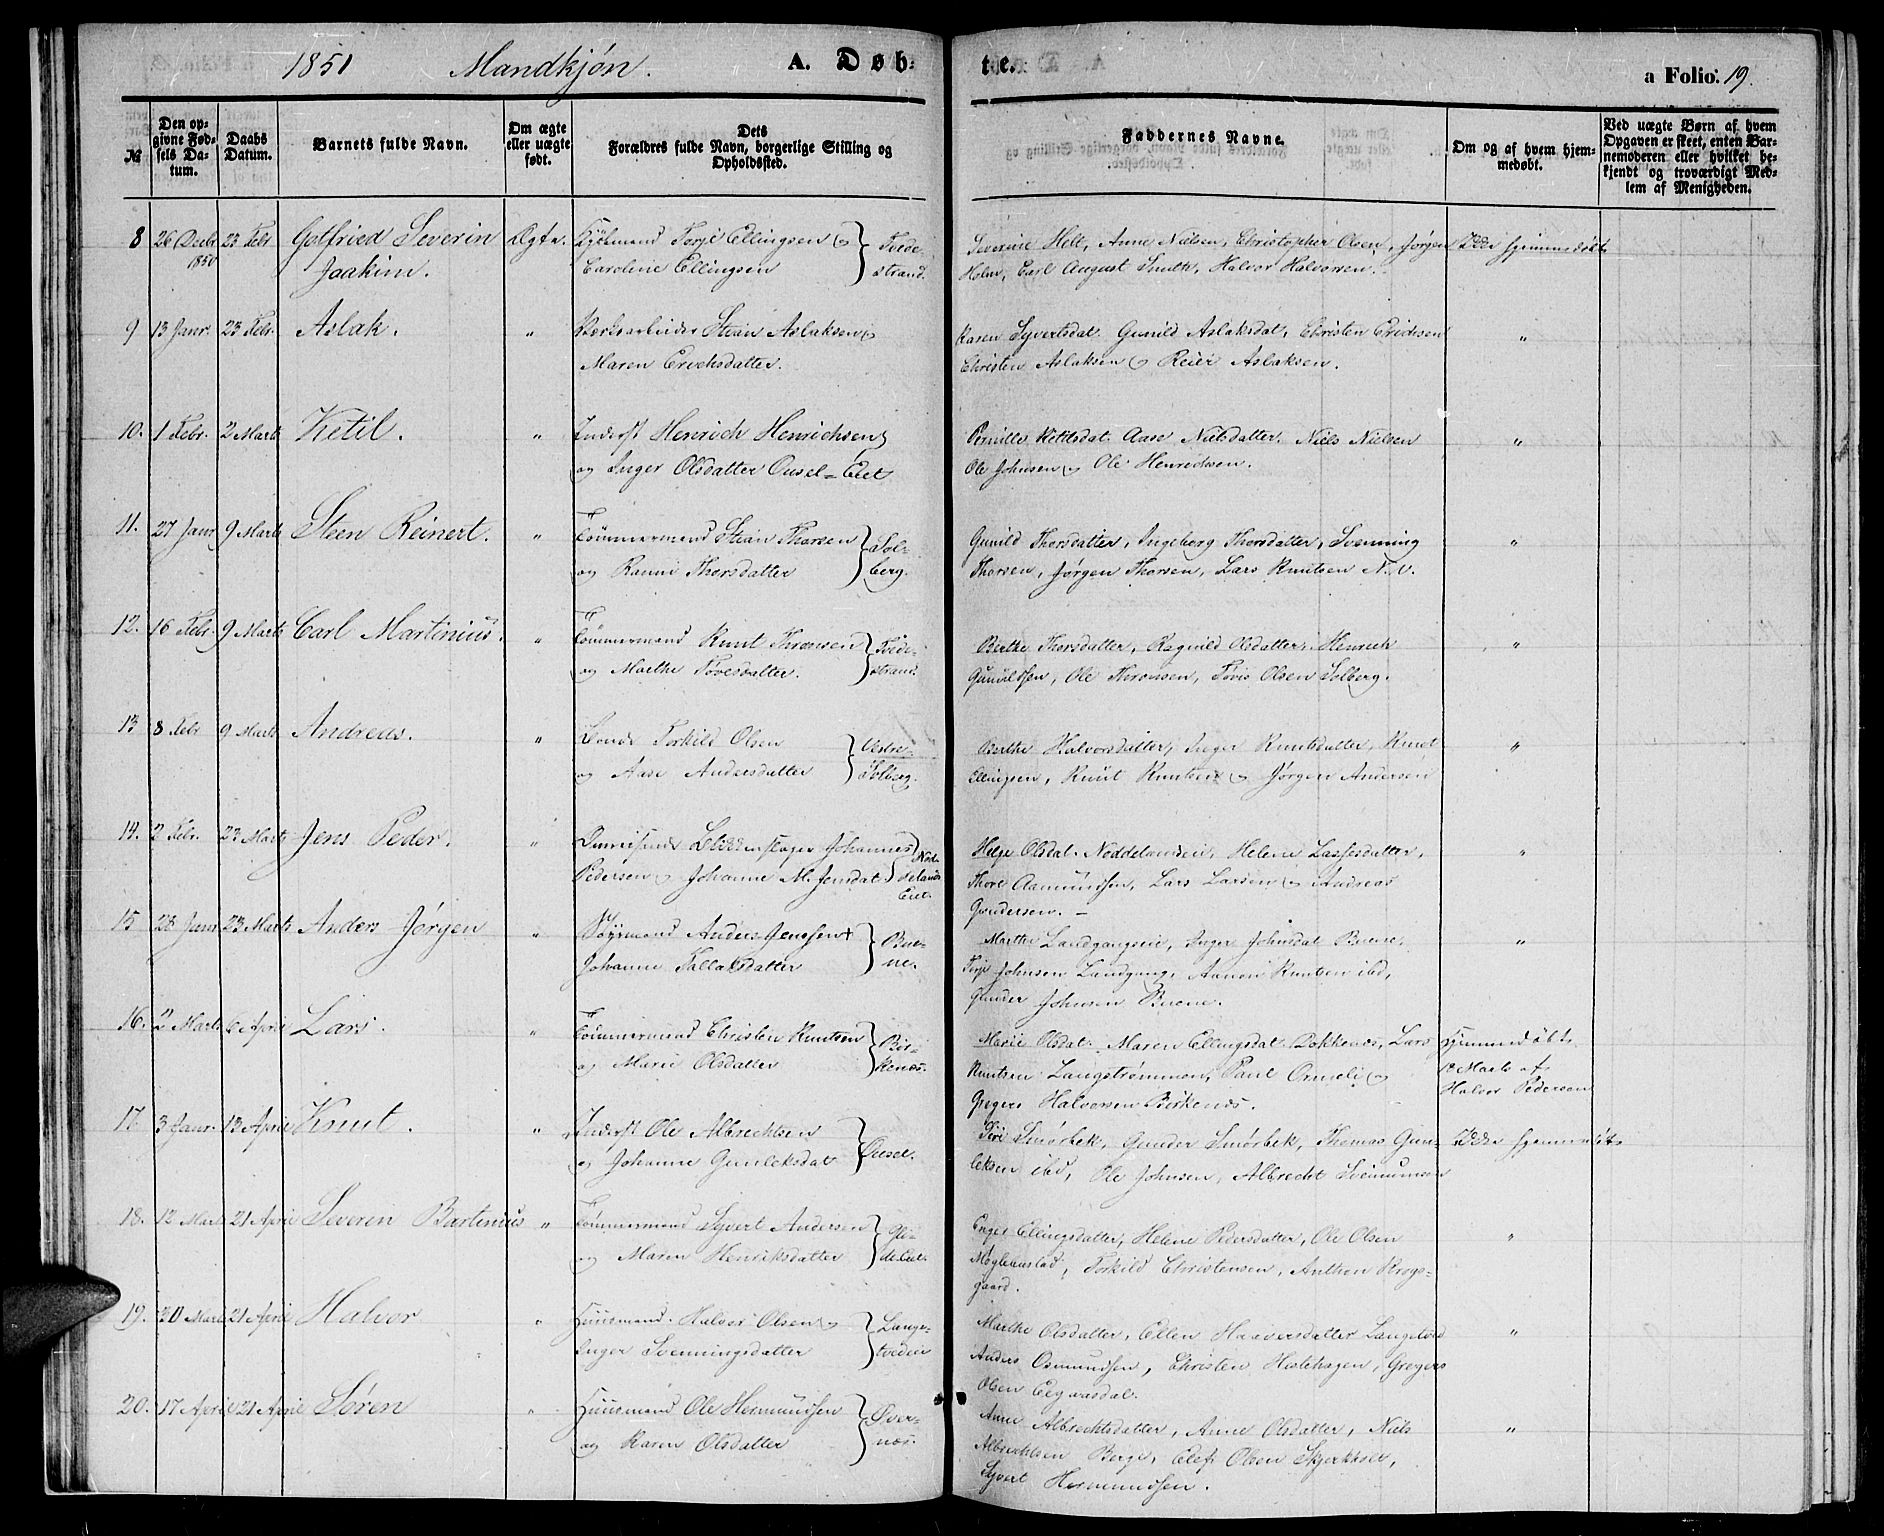 1851 Mandkjøn. A. Døb-
te. a Folio: 19.
№
Den op-
givne Fød-
sels Da-
tum.
Daabs
Datum.
Barnets fulde Navn.
Om ægte
eller uægte
født.
Dets
Forældres fulde Navn, borgerlige Stilling og
Opholdssted.
Faddernes Navne.
Om og af hvem hjem-
medøbt.
Ved uægte Børn af hvem
Opgaven er skeet, enten Bar-
nemoderen eller hvilket be-
kjendt og troværdigt Med-
lem af Menigheden.
8 26 Decbr 23 Febr Gotfried Severin Ægte. Terje Ellingsen Tvede-
1850 Joakim. Caroline Ellingsen strand.
Severine Helt, Anne Nielsen, Christopher Olsen, Jørgen
Holm, Carl August Smith, Halvor Halvorsen. hjemmedøbt
9 13 Janr. 23 Febr. Aslak. " Værksarbeider Stian Aslaksen
Maren Erichsdatter.
Karen Syvertsdat. Gunild Aslaksdat, Christen Erichsen "
Christen Aslaksen Reier Aslaksen.
10. 1 Febr. 2 Marts Ketil. " Inderst Henrich Henrichsen
og Inger Olsdatter Ousel=Eiet
Pernille Ketilsdat. Aase Nielsdatter. Niels Nielsen "
Ole Johnsen Ole Henrichsen.
11. 27 Janr 9 Marts Steen Reinert. " Tömmermand Stian Thorsen Sol-
og Ranni Thorsdatter berg.
Gunild Thorsdatter, Ingeborg Thorsdatter, Svenning "
Thorsen, Jørgen Thorsen, Lars Knutsen N. V.
12. 16 Febr. 9 Marts Carl Martinius. " Tömmermand Knut Thronsen Tvede-
og Marthe Tøvesdatter. strand.
Berthe Thorsdatter, Ragnild Olsdatter, Henrich "
Gunildsen, Ole Thronsen, Tøvis Olsen Solberg.
13 8 Febr 9 Marts Andreas. " Bonde Torkild Olsen Vestre-
og Aase Andersdatter Solberg.
Berthe Halvorsdatter, Inger Knutsdatter, Knut "
Ellingsen, Knut Knutsen Jørgen Andersen
14. 2 Febr. 23 Marts Jens Peder. " Johannes
Pedersen Johanne M. Jensdat. Eiet.
Helge Olsdat. Noddelandsei, Helene Lassesdatter, "
Thore Aamundsen, Lars Larsen Andreas
Gundersen. -
15 28 Janr 23 Marts Anders Jørgen " Anders Jenssen Bue-
Johanne Tallaksdatter ne.
Marthe Landgangsei, Inger Johnsdat Buene, "
Terje Johnsen Landgang, Aanon Knutsen ibd,
Gunder Johnsen Buene.
16. 2 Marts 6 April Lars. " Tömmermand Christen Knutsen Bir-
og Marie Olsdatter kenæs.
Marie Olsdat. Maren Ellingsdat. Dokkenæs, Lars hjemmedøbt
Knutsen Langstrømmen, Paul Ormeli Marts af
Gregers Halvorsen Birkenæs. Halvor Pedersen
17. 3 Janr. 13 April Knut. " Inderst Ole Albrechtsen Ousel.
Johanne Gunleksdat
Siri Smörbek, Gunder Smörbek, Thomas Gun- hjemmedøbt
leksen ibd, Ole Johnsen, Albrecht Svenumsen
18. 12 Marts 21 April Severin Bartinius " Tömmermand Syvert Andersen
og Maren Henriksdatter
Inger Ellingsdatter, Helene Pedersdatter, Ole Olsen "
Møglaanstad, Torkild Christensen, Anthon Krogs-
gaard.
19. 30 Marts 21 April Halvor " Huusmand Halvor Olsen Lange-
Inger Svenningsdatter tveden
Marthe Olsdatter, Ellen Haaversdatter Langetved "
Anders Osmundsen, Christen Hestehagen, Gregers
Olsen Eegaasdal.
20. 17 April 21 April Søren " Huusmand Ole Hermundsen Øver-
og Karen Olsdatter næs.
Anne Albrechtsdatter, Anne Olsdatter, Niels "
Albrechtsen Berge, Elef Olsen Skjerkholt,
Syvert Hermundsen.